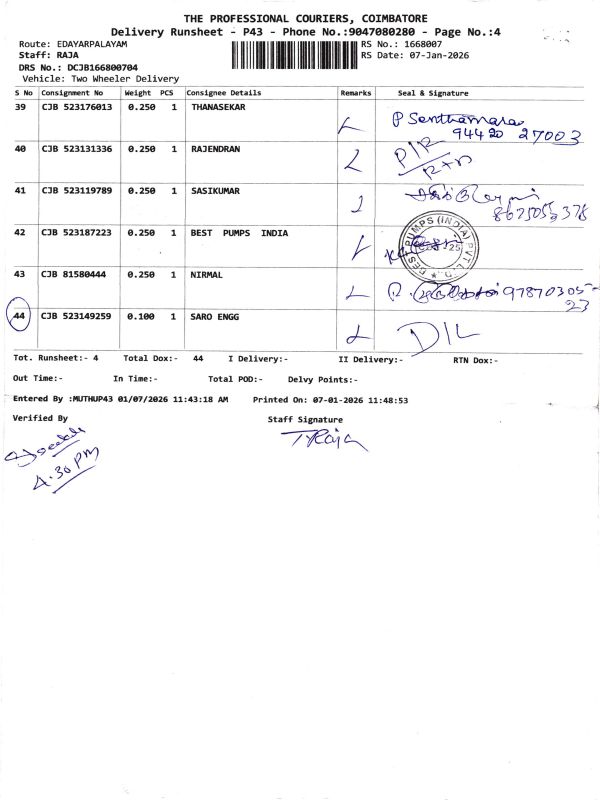 THE PROFESSIONAL COURIERS, COIMBATORE
Delivery Runsheet - P43 - Phone No.:9047080280 - Page No.:4
Route: EDAYARPALAYAM RS No.: 1668007
Staff: RAJA RS Date: 07-Jan-2026
DRS No.: DCJB166800704
Vehicle: Two Wheeler Delivery
S No Consignment No Weight PCS Consignee Details Remarks Seal & Signature
39 CJB 523176013 0.250 1 THANASEKAR P Senthamarai
94420 27003
40 CJB 523131336 0.250 1 RAJENDRAN P/R
RTN
41 CJB 523119789 0.250 1 SASIKUMAR
42 CJB 523187223 0.250 1 BEST PUMPS INDIA BEST PUMPS (INDIA) PVT. LTD.
43 CJB 81580444 0.250 1 NIRMAL 97870305-
23
44 CJB 523149259 0.100 1 SARO ENGG D/L
Tot. Runsheet:- 4 Total Dox:- 44 I Delivery:- II Delivery:- RTN Dox:-
Out Time:- In Time:- Total POD:- Delvy Points:-
Entered By :MUTHUP43 01/07/2026 11:43:18 AM Printed On: 07-01-2026 11:48:53
Verified By Staff Signature
T Raja
4.30 PM